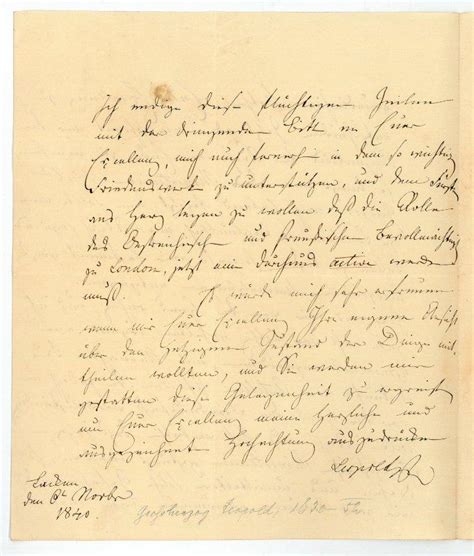 Ich endige diese flüchtigen Zeilen
mit der dringenden Bitte an Euer
Excellenz, mich auch fernerh in dem so wichtig
Friedenswerk zu unterstützen, und dem Fürst
ans Herz legen zu wollen daß die Rolle
des Oestreichisch und Preußischen Bevollmächtig
zu London, jetzt eine durchaus active werden
muß. Es würde mich sehr erfreuen
wenn mir Euer Excellenz Ihre eigene Ansicht
über den jetzigen Zustand der Dinge mit-
theilen wollten, und Sie werden mir
gestatten diese Gelegenheit zu
um Euer Excellenz meine herzliche und
ausgezeichnet Hochachtung auszudrücken
Leopold
Laeken
den 6t Novbr
1840.
Grossherzog Leopold, 1830